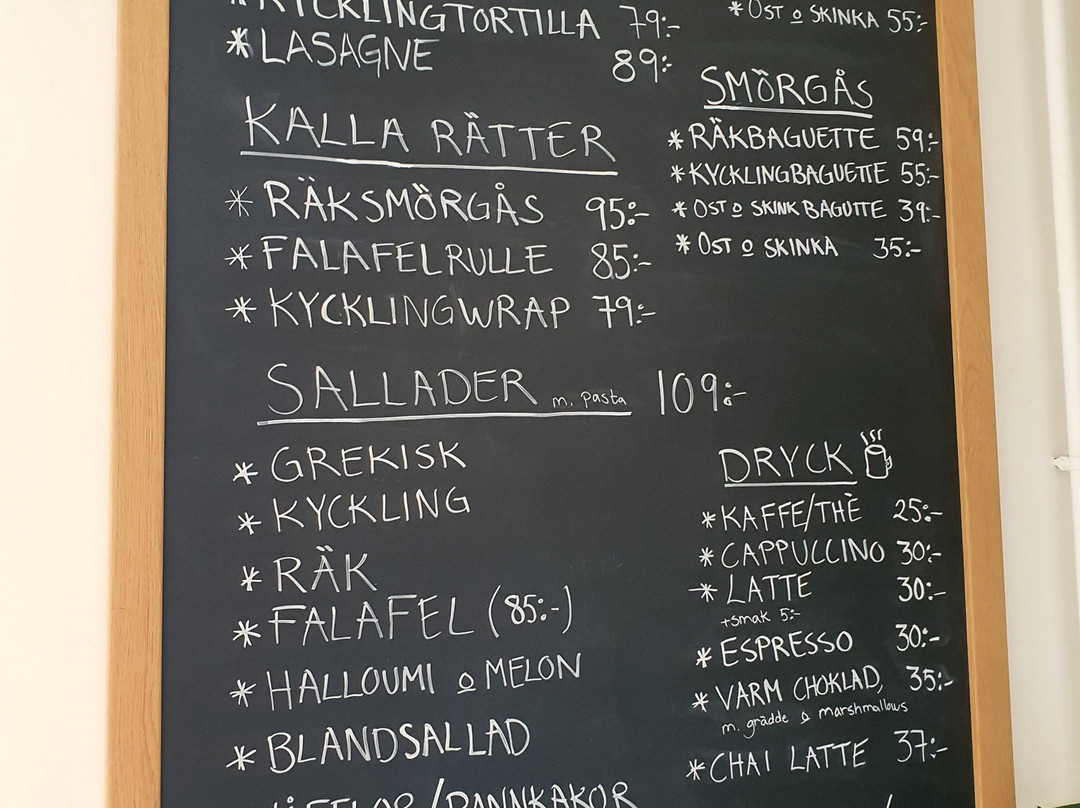 *KYCKLINGTORTILLA 79:-
*LASAGNE 89:-
KALLA RÄTTER
*RÄKSMÖRGÅS 95:-
*FALAFELRULLE 85:-
*KYCKLINGWRAP 79:-
SALLADER m. pasta 109:-
*GREKISK
*KYCKLING
*RÄK
*FALAFEL (85:-)
*HALLOUMI o MELON
*BLANDSALLAD
/PANNKAKOR
*OST o SKINKA 55:-
SMÖRGÅS
*RÄKBAGUETTE 59:-
*KYCKLINGBAGUETTE 55:-
*OST o SKINK BAGUTTE 39:-
*OST o SKINKA 35:-
DRYCK
*KAFFE/THÈ 25:-
*CAPPUCCINO 30:-
*LATTE 30:-
+smak 5:-
*ESPRESSO 30:-
*VARM CHOKLAD, 35:-
m. grädde o marshmallows
*CHAI LATTE 37:-